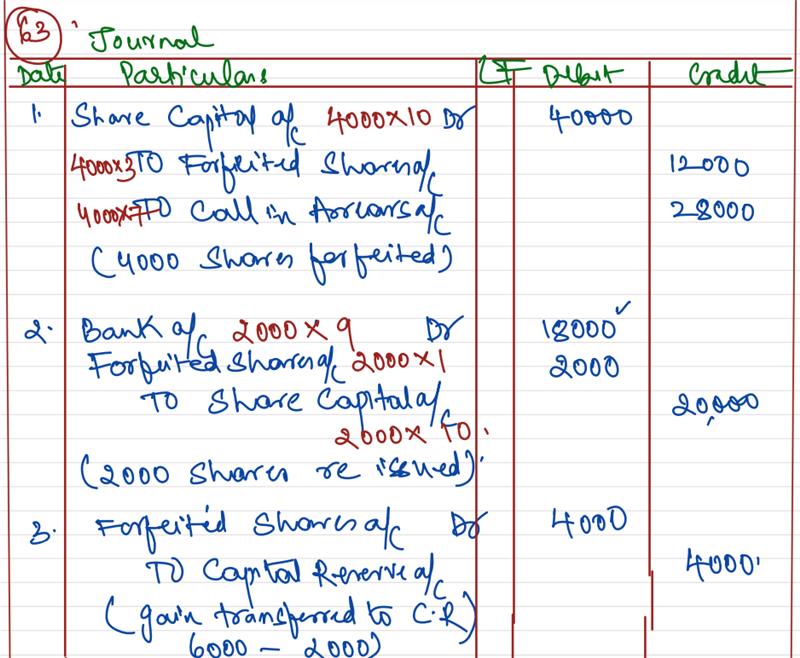 63
Journal
Date Particulars LF Debit Credit
1. Share Capital a/c 4000×10 Dr 40000
4000×3 TO Forfeited Shares a/c 12000
4000×7 TO Call in Arrears a/c 28000
(4000 Shares forfeited)
2. Bank a/c 2000×9 Dr 18000
Forfeited Shares a/c 2000×1 2000
TO Share Capital a/c 20,000
2000× 10.
(2000 Shares re issued)
3. Forfeited Shares a/c Dr 4000
TO Capital Reserve a/c 4000
(gain transferred to C.R)
(6000 - 2000)